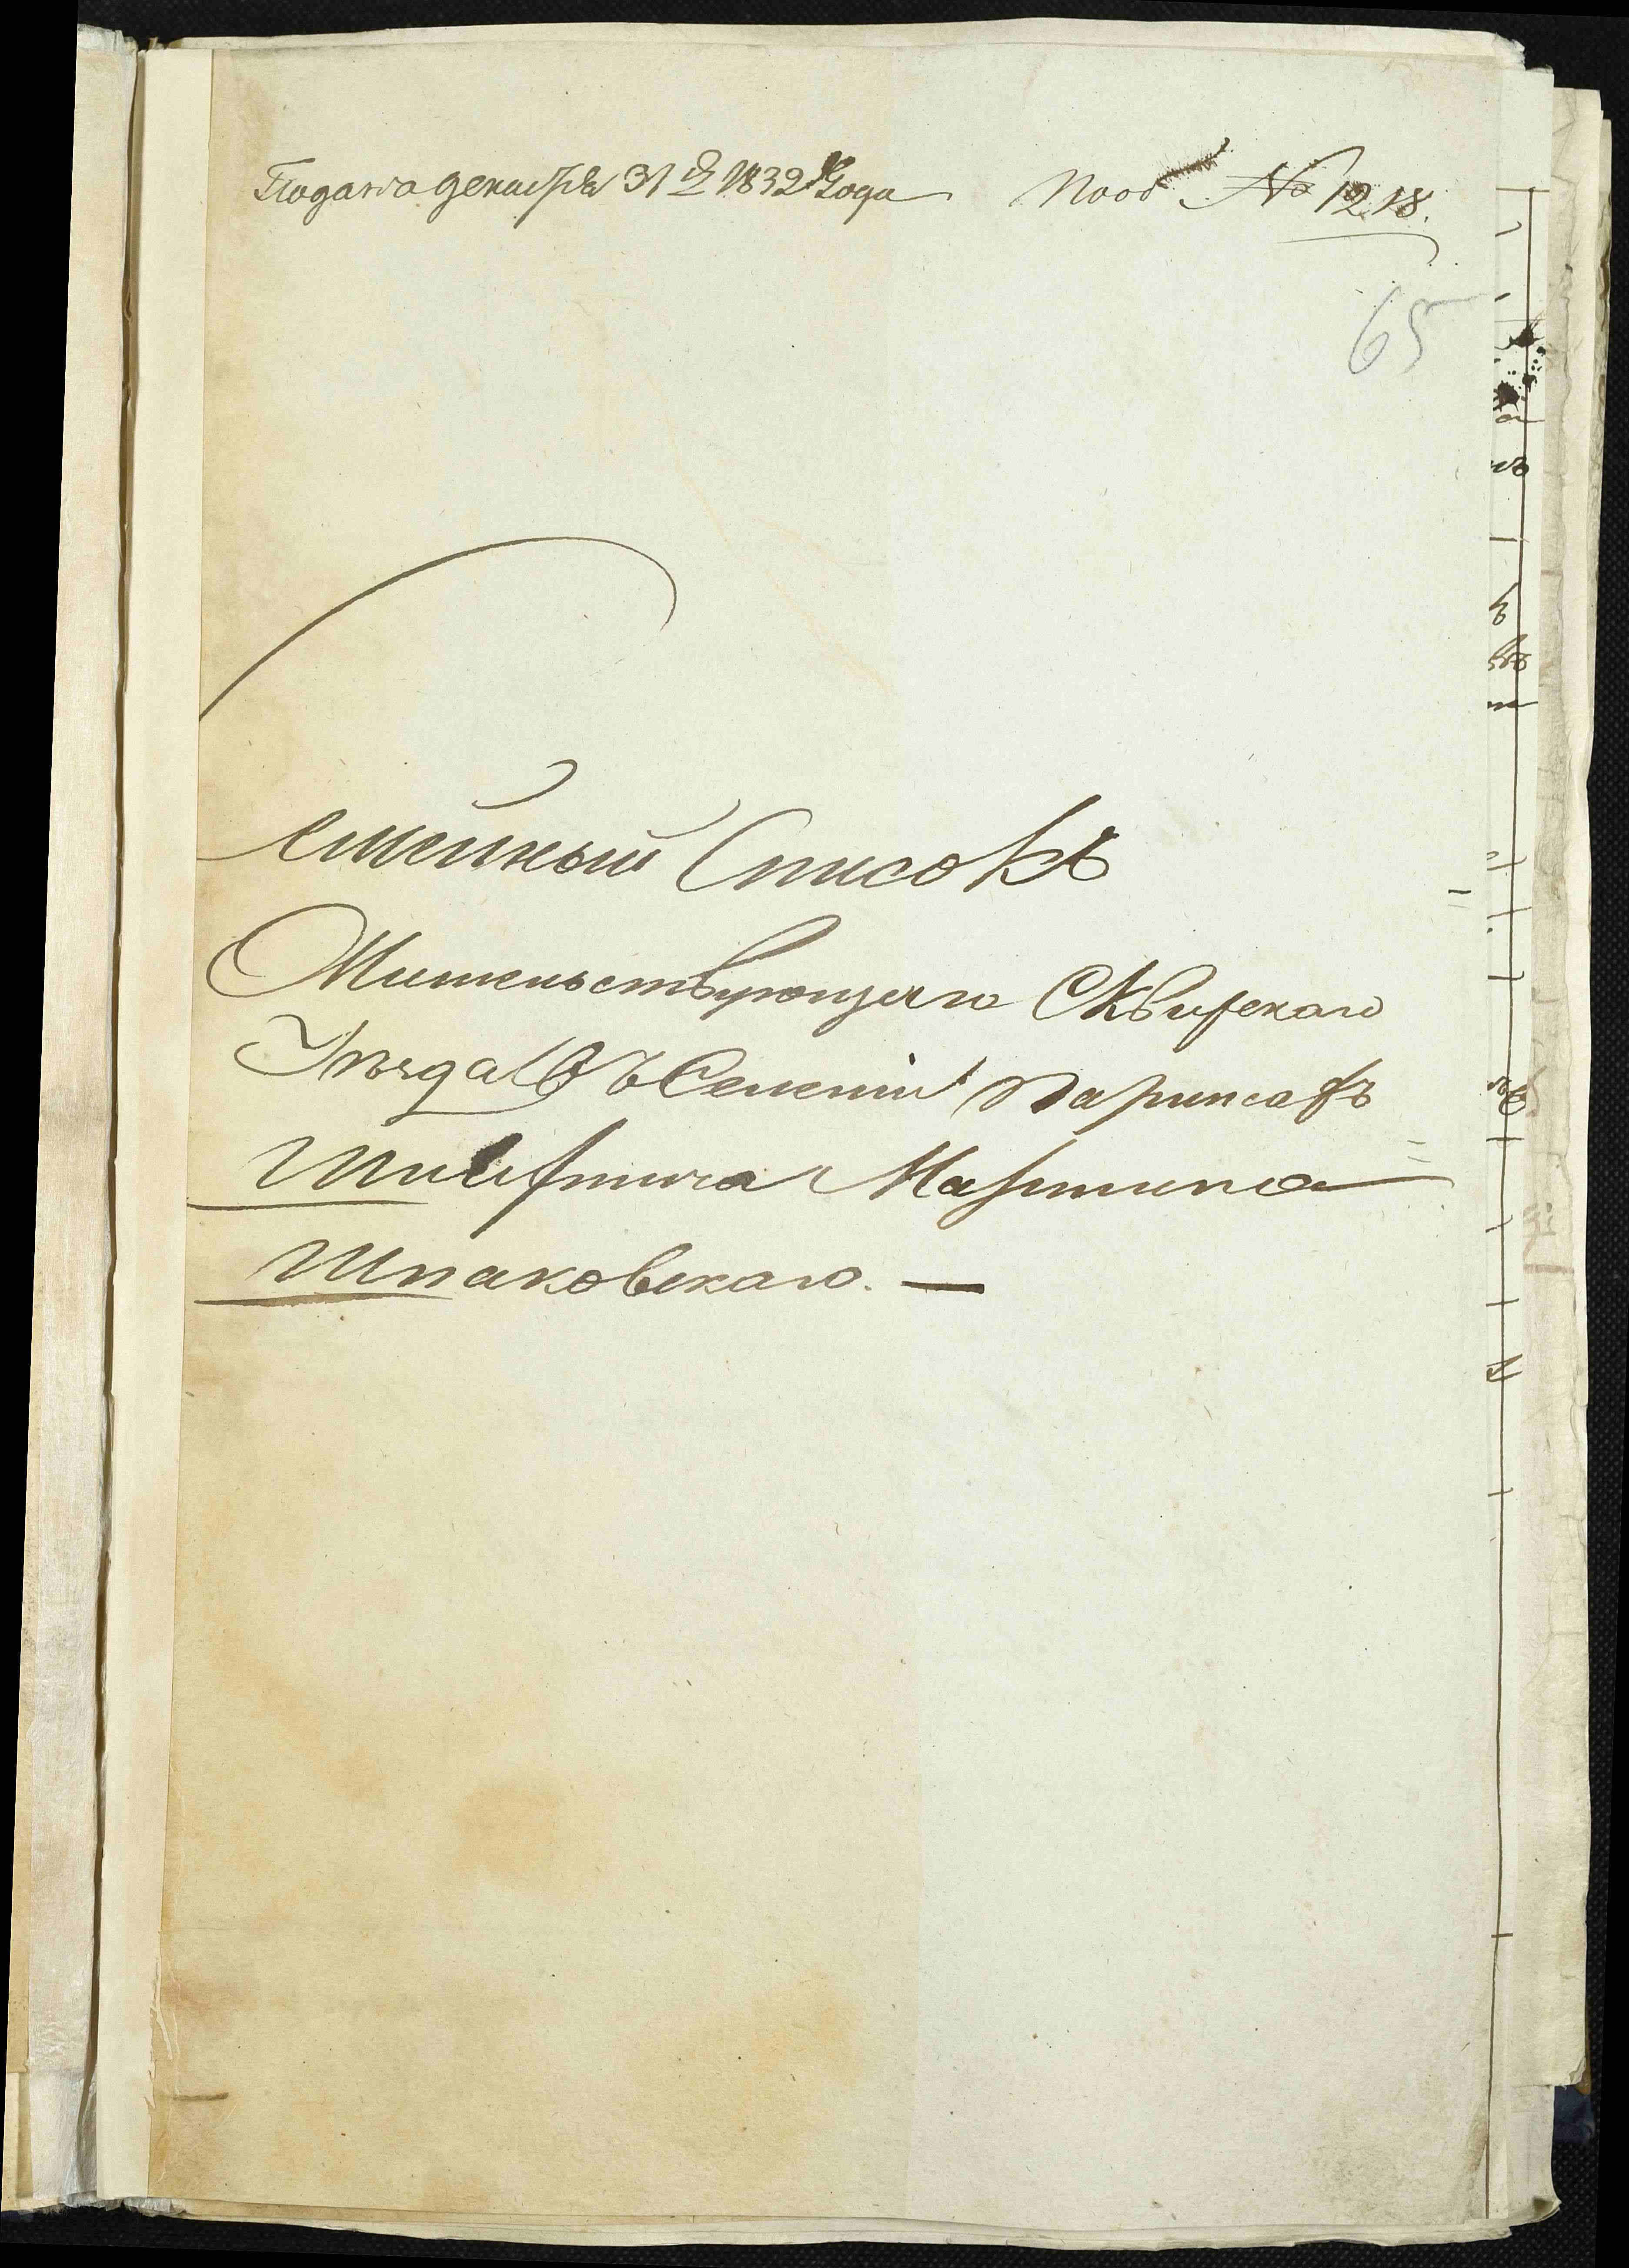 Подано декабря 31 д 1832 Года Подъ № 1218.
65
Семейный Списокъ
Жительствующаго Сквирскаго
Уѣзда Въ Селеніи
Шляхтича Мартина
Шпаковскаго. —